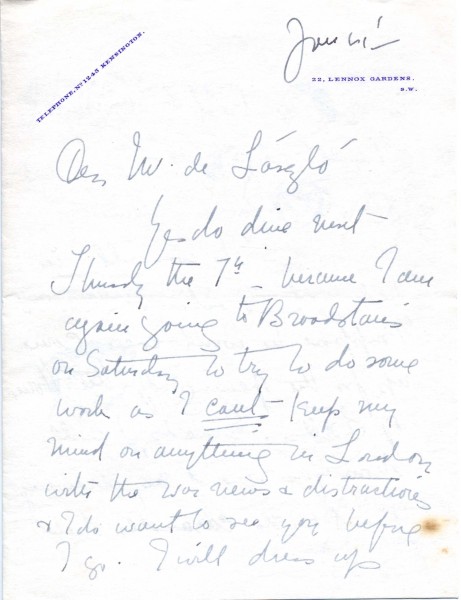 TELEPHONE. Nº 1243 KENSINGTON.
22, LENNOX GARDENS.
S.W.
Dear Mr. de László
Yes do dine next
Thursday the 7th – because I am
again going to Broadstairs
on Saturday to try to do some
work as I can't keep my
mind on anything in London
with the war news & distractions
& I do want to see you before
I go. I will dress up